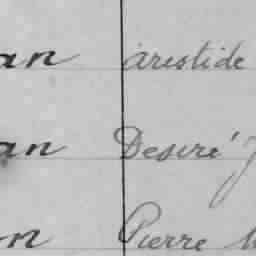 an aristide
an Desiré J
on Pierre